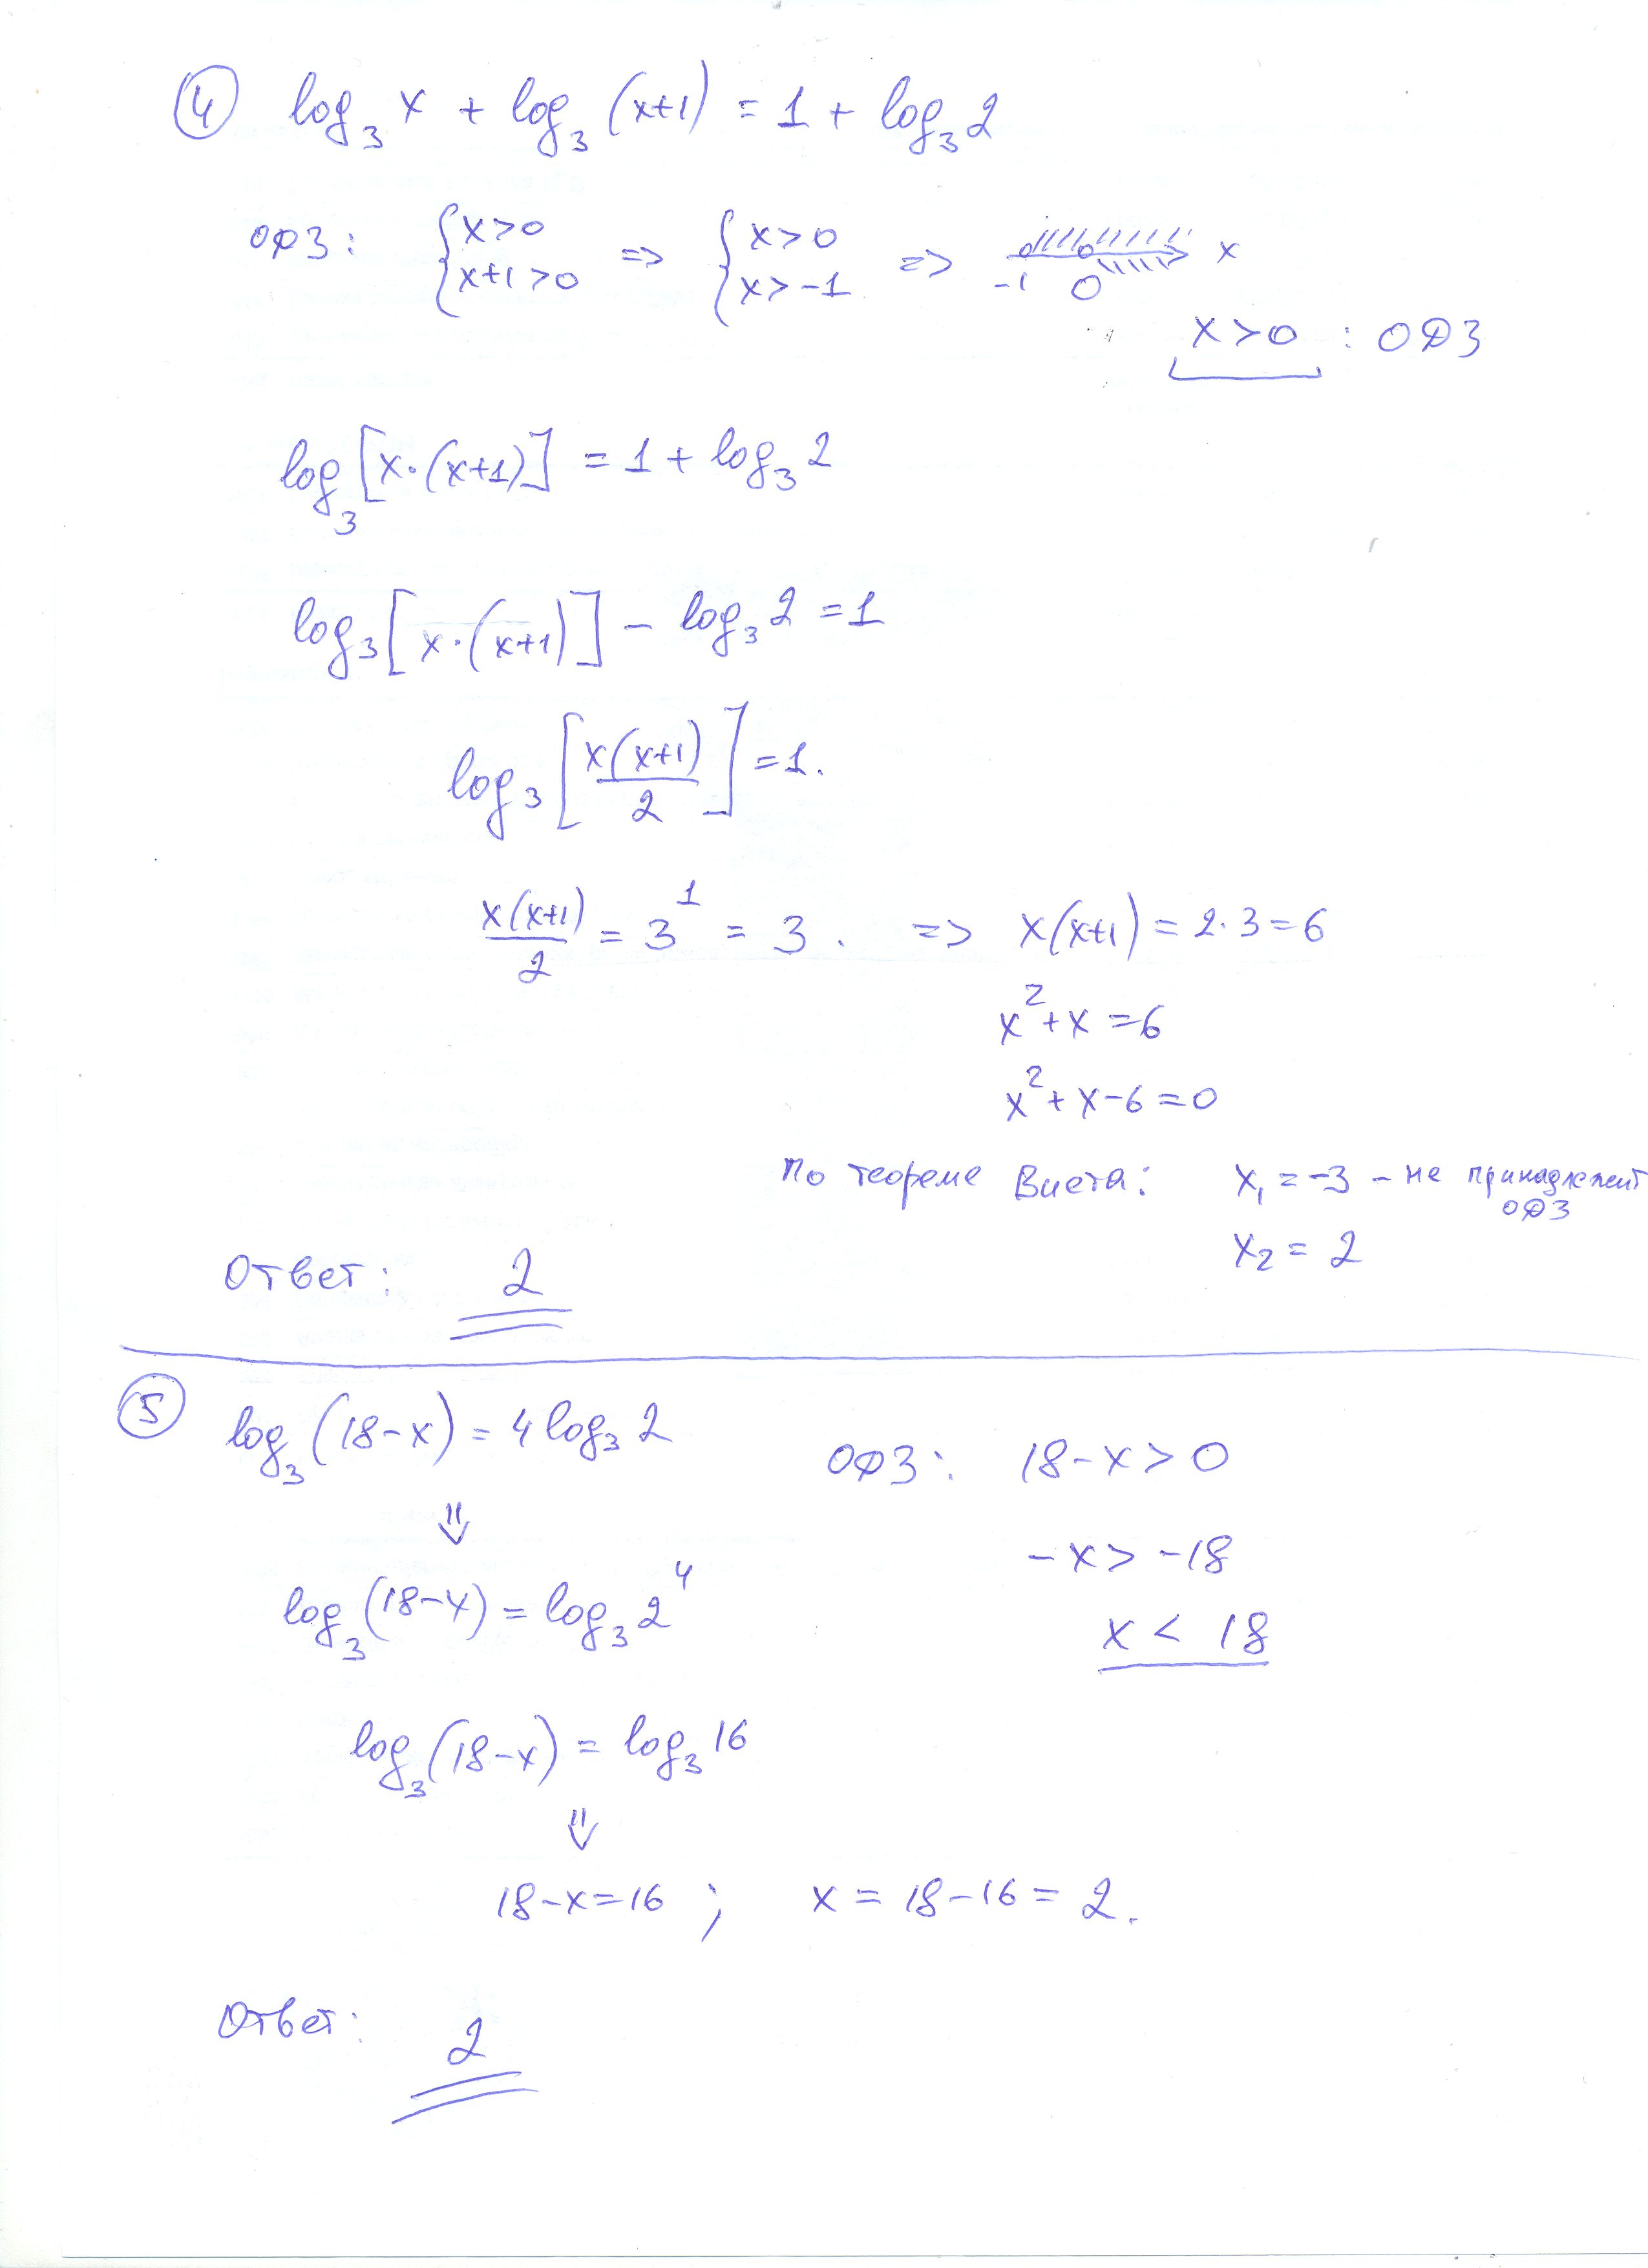 ④ log₃ x + log₃ (x+1) = 1 + log₃ 2
ОДЗ: { x>0 => { x>0 => -1 0 x
{ x+1>0 { x>-1
x>0 : ОДЗ
log₃ [x·(x+1)] = 1 + log₃ 2
log₃ [x·(x+1)] - log₃ 2 = 1
log₃ [x(x+1)/2] = 1.
x(x+1)/2 = 3¹ = 3. => x(x+1) = 2·3 = 6
x² + x = 6
x² + x - 6 = 0
По теореме Виета: x₁ = -3 - не принадлежит ОДЗ
x₂ = 2
Ответ: 2
⑤ log₃ (18-x) = 4 log₃ 2 ОДЗ: 18-x > 0
⇓
-x > -18
log₃ (18-x) = log₃ 2⁴
x < 18
log₃ (18-x) = log₃ 16
⇓
18-x=16 ; x = 18-16 = 2.
Ответ: 2